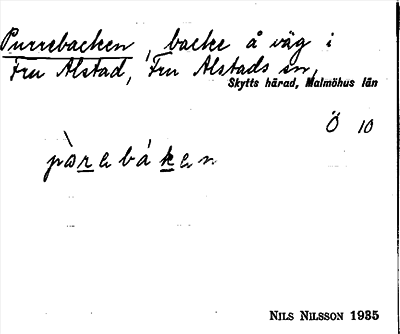 Purrebacken, backe å väg i
Fru Alstad, Fru Alstads sn,
Skytts härad, Malmöhus län
Ö 10
pàrabákan
NILS NILSSON 1935